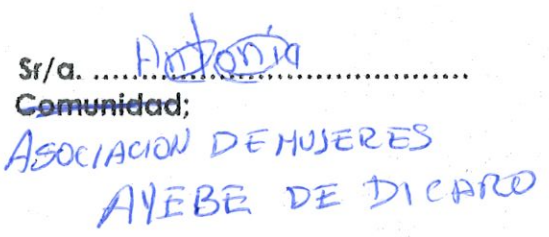 Sr/a. .....Antonia.....
Comunidad;
ASOCIACION DE MUJERES
AYEBE DE DICARO